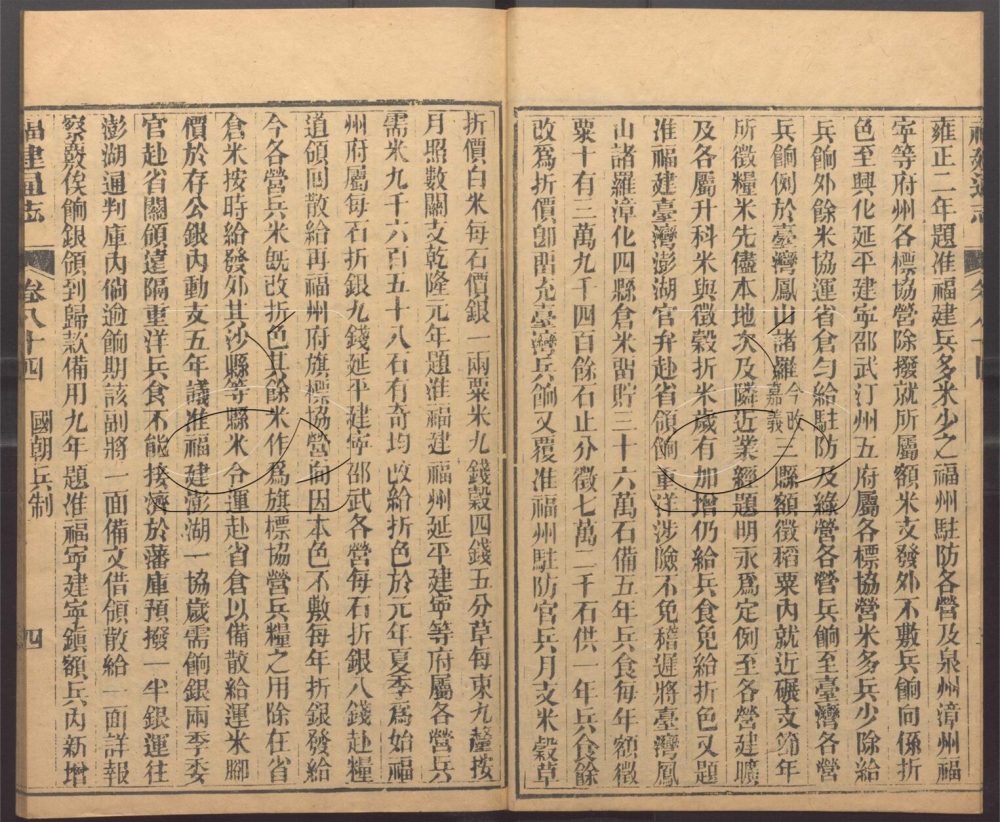 雍正二年題准福建兵多米少之福州駐防各營及泉州漳州福
寧等府州各標協營除撥就所屬額米支發外不敷兵餉向係折
色至興化延平建寧邵武汀州五府屬各標協營米多兵少除給
兵餉外餘米協運省倉勻給駐防及綠營各營兵餉至臺灣各營
兵餉例於臺灣鳳山諸羅今改嘉義三縣額徵稻粟內就近碾支節年
所徵糧米先儘本地次及隣近業經題明永爲定例至各營建曠
及各屬升科米與徵穀折米歲有加增仍給兵食免給折色又題
准福建臺灣澎湖官弁赴省領餉重洋涉險不免稽遲將臺灣鳳
山諸羅漳化四縣倉米畱貯三十六萬石備五年兵食每年額徵
粟十有三萬九千四百餘石止分徵七萬二千石供一年兵食餘
改爲折價卽畱充臺灣兵餉又覆准福州駐防官兵月支米穀草
折價白米每石價銀一兩粟米九錢穀四錢五分草每束九釐按
月照數關支乾隆元年題准福建福州延平建寧等府屬各營兵
需米九千六百五十八石有奇均改給折色於元年夏季爲始福
州府屬每石折銀九錢延平建寧邵武各營每石折銀八錢赴糧
道領回散給再福州府旗標協營向因本色不敷每年折銀發給
今各營兵米旣改折色其餘米作爲旗標協營兵糧之用除在省
倉米按時給發外其沙縣等縣米令運赴省倉以備散給運米腳
價於存公銀內動支五年議准福建澎湖一協歲需餉銀兩季委
官赴省關領遠隔重洋兵食不能接濟於藩庫預撥一半銀運往
澎湖通判庫內倘逾餉期該副將一面備文借領散給一面詳報
察覈俟餉銀領到歸款備用九年題准福寧建寧鎮額兵內新增
福建通志
卷八十四
國朝兵制
四